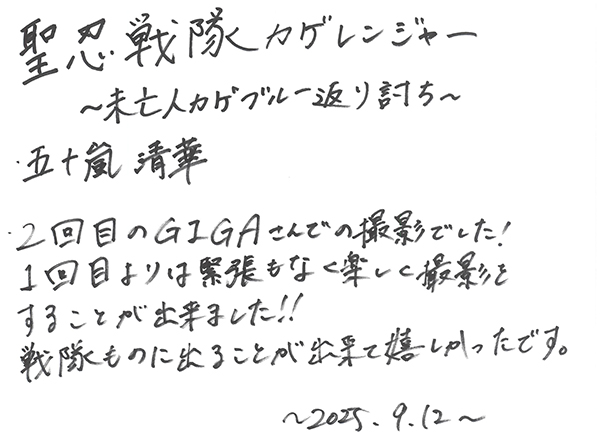 聖忍戦隊カゲレンジャー
～未亡人カゲブルー返り討ち～
・五十嵐 清華
・2回目のGIGAさんでの撮影でした!
1回目よりは緊張もなく楽しく撮影を
することが出来ました!!
戦隊ものに出ることが出来て嬉しかったです。
～2025.9.12～